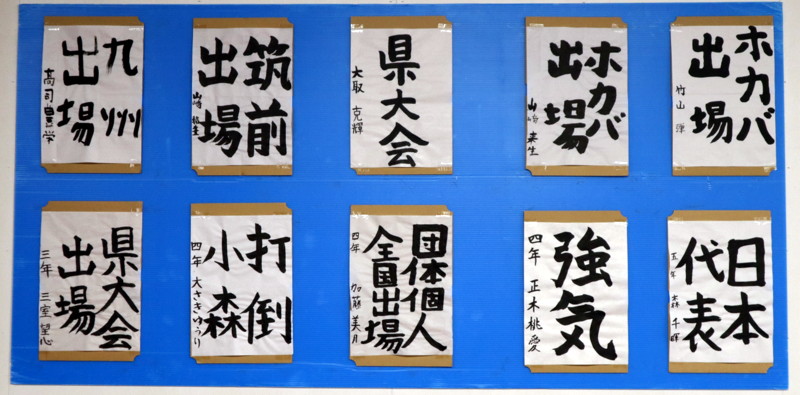 九州
出場
高司豊学
筑前
出場
山崎
県大会
大取 克輝
ホカバ
出場
山崎 来生
ホカバ
出場
竹山 
県大会
出場
三年 三室 望心
打倒
小森
四年 大さきゆうり
団体個人
全国出場
四年 加藤 美月
強気
四年 正木桃愛
日本
代表
五年 森 千暉